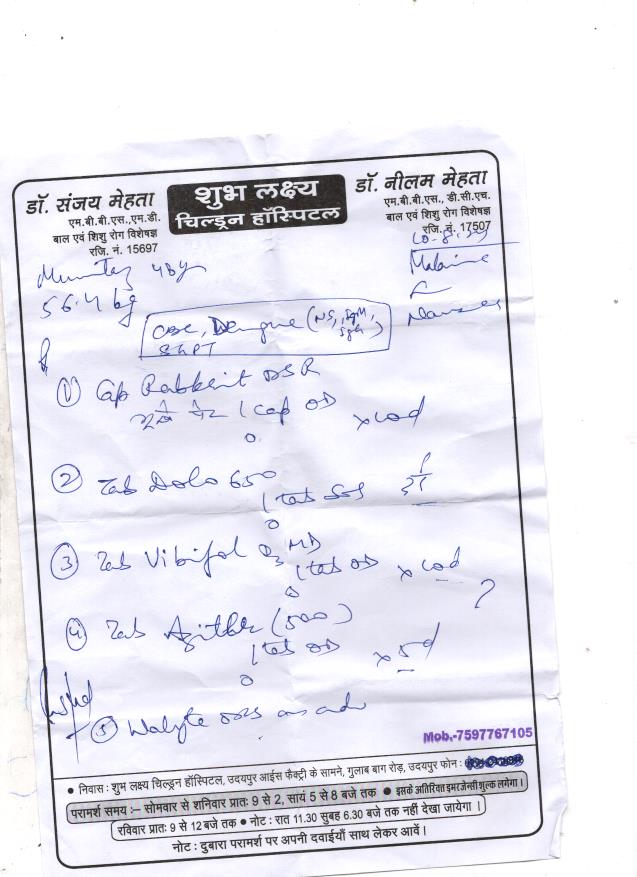 डॉ. संजय मेहता
एम.बी.बी.एस.,एम.डी.
बाल एवं शिशु रोग विशेषज्ञ
रजि. नं. 15697
शुभ लक्ष्य
चिल्ड्रन हॉस्पिटल
डॉ. नीलम मेहता
एम.बी.बी.एस., डी.सी.एच.
बाल एवं शिशु रोग विशेषज्ञ
रजि. नं. 17507
56.4 kg
CBC, Dengue (NS1, IgM, IgG)
SGPT
① Cap Rabkeit DSR
1 cap OD x 10d
② Tab Dolo 650
1 tab SOS
③ Tab Vibifol D3 MD
1 tab OD x 10d
④ Tab (500)
1 tab OD x 5d
⑤ Walyte ORS
Mob.-7597767105
• निवास : शुभ लक्ष्य चिल्ड्रन हॉस्पिटल, उदयपुर आईस फैक्ट्री के सामने, गुलाब बाग रोड़, उदयपुर फोन :
परामर्श समय :– सोमवार से शनिवार प्रातः 9 से 2, सायं 5 से 8 बजे तक ● इसके अतिरिक्त इमरजेन्सी शुल्क लगेगा।
रविवार प्रातः 9 से 12 बजे तक ● नोट : रात 11.30 सुबह 6.30 बजे तक नहीं देखा जायेगा ।
नोट : दुबारा परामर्श पर अपनी दवाईयाँ साथ लेकर आवें।